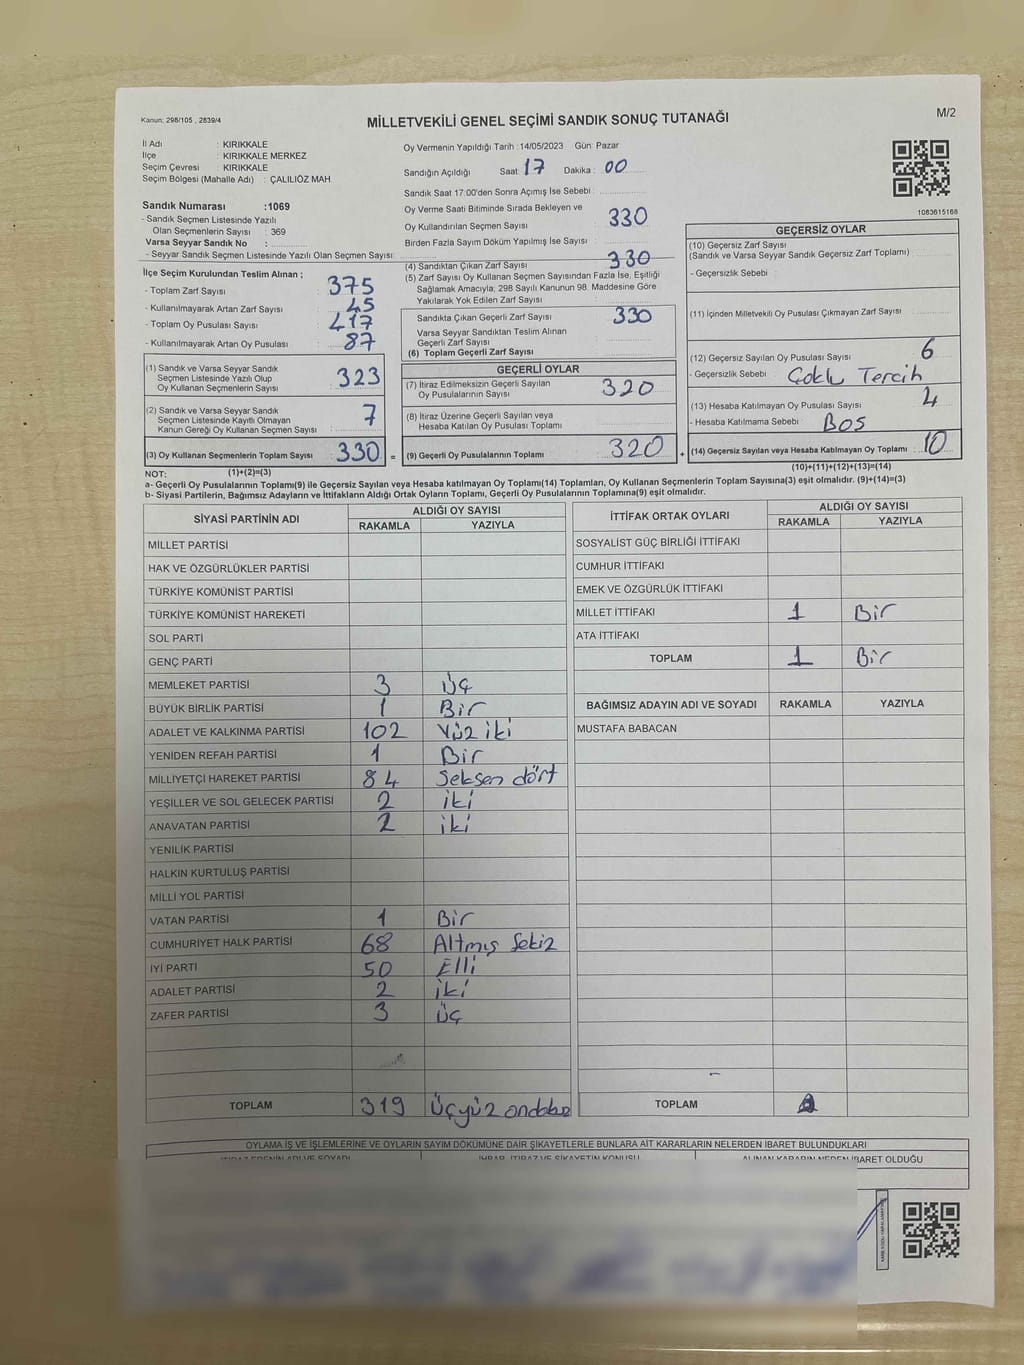 Kanun; 298/105 , 2839/4
MİLLETVEKİLİ GENEL SEÇİMİ SANDIK SONUÇ TUTANAĞI
M/2
İl Adı : KIRIKKALE
İlçe : KIRIKKALE MERKEZ
Seçim Çevresi : KIRIKKALE
Seçim Bölgesi (Mahalle Adı) : ÇALILIÖZ MAH.
Sandık Numarası :1069
- Sandık Seçmen Listesinde Yazılı
Olan Seçmenlerin Sayısı : 369
Varsa Seyyar Sandık No :
- Seyyar Sandık Seçmen Listesinde Yazılı Olan Seçmen Sayısı
Oy Vermenin Yapıldığı Tarih :14/05/2023 Gün: Pazar
Sandığın Açıldığı Saat: 17 Dakika : 00
Sandık Saat 17:00'den Sonra Açımış İse Sebebi :
Oy Verme Saati Bitiminde Sırada Bekleyen ve
Oy Kullandırılan Seçmen Sayısı : 330
Birden Fazla Sayım Döküm Yapılmış İse Sayısı
1083615168
İlçe Seçim Kurulundan Teslim Alınan ;
- Toplam Zarf Sayısı : 375
- Kullanılmayarak Artan Zarf Sayısı : 45
- Toplam Oy Pusulası Sayısı : 417
- Kullanılmayarak Artan Oy Pusulası : 87
(1) Sandık ve Varsa Seyyar Sandık
Seçmen Listesinde Yazılı Olup
Oy Kullanan Seçmenlerin Sayısı : 323
(2) Sandık ve Varsa Seyyar Sandık
Seçmen Listesinde Kayıtlı Olmayan
Kanun Gereği Oy Kullanan Seçmen Sayısı : 7
(3) Oy Kullanan Seçmenlerin Toplam Sayısı : 330 =
(4) Sandıktan Çıkan Zarf Sayısı : 330
(5) Zarf Sayısı Oy Kullanan Seçmen Sayısından Fazla İse, Eşitliği
Sağlamak Amacıyla; 298 Sayılı Kanunun 98. Maddesine Göre
Yakılarak Yok Edilen Zarf Sayısı :
Sandıkta Çıkan Geçerli Zarf Sayısı : 330
Varsa Seyyar Sandıktan Teslim Alınan
Geçerli Zarf Sayısı :
(6) Toplam Geçerli Zarf Sayısı
GEÇERLİ OYLAR
(7) İtiraz Edilmeksizin Geçerli Sayılan
Oy Pusulalarının Sayısı : 320
(8) İtiraz Üzerine Geçerli Sayılan veya
Hesaba Katılan Oy Pusulası Toplamı
(9) Geçerli Oy Pusulalarının Toplamı : 320 +
GEÇERSİZ OYLAR
(10) Geçersiz Zarf Sayısı
(Sandık ve Varsa Seyyar Sandık Geçersiz Zarf Toplamı)
- Geçersizlik Sebebi :
(11) İçinden Milletvekili Oy Pusulası Çıkmayan Zarf Sayısı
(12) Geçersiz Sayılan Oy Pusulası Sayısı : 6
- Geçersizlik Sebebi : Çoklu Tercih
(13) Hesaba Katılmayan Oy Pusulası Sayısı : 4
- Hesaba Katılmama Sebebi : BOS
(14) Geçersiz Sayılan veya Hesaba Katılmayan Oy Toplamı : 10
NOT: (1)+(2)=(3)
(10)+(11)+(12)+(13)=(14)
a- Geçerli Oy Pusulalarının Toplamı(9) ile Geçersiz Sayılan veya Hesaba katılmayan Oy Toplamı(14) Toplamları, Oy Kullanan Seçmenlerin Toplam Sayısına(3) eşit olmalıdır. (9)+(14)=(3)
b- Siyasi Partilerin, Bağımsız Adayların ve İttifakların Aldığı Ortak Oyların Toplamı, Geçerli Oy Pusulalarının Toplamına(9) eşit olmalıdır.
SİYASİ PARTİNİN ADI ALDIĞI OY SAYISI
RAKAMLA YAZIYLA
MİLLET PARTİSİ
HAK VE ÖZGÜRLÜKLER PARTİSİ
TÜRKİYE KOMÜNİST PARTİSİ
TÜRKİYE KOMÜNİST HAREKETİ
SOL PARTİ
GENÇ PARTİ
MEMLEKET PARTİSİ 3 Üç
BÜYÜK BİRLİK PARTİSİ 1 Bir
ADALET VE KALKINMA PARTİSİ 102 Yüz iki
YENİDEN REFAH PARTİSİ 1 Bir
MİLLİYETÇİ HAREKET PARTİSİ 84 Seksen dört
YEŞİLLER VE SOL GELECEK PARTİSİ 2 iki
ANAVATAN PARTİSİ 2 iki
YENİLİK PARTİSİ
HALKIN KURTULUŞ PARTİSİ
MİLLİ YOL PARTİSİ
VATAN PARTİSİ 1 Bir
CUMHURİYET HALK PARTİSİ 68 Altmış Sekiz
İYİ PARTİ 50 Elli
ADALET PARTİSİ 2 iki
ZAFER PARTİSİ 3 Üç
TOPLAM 319 Üçyüz ondokuz
İTTİFAK ORTAK OYLARI ALDIĞI OY SAYISI
RAKAMLA YAZIYLA
SOSYALİST GÜÇ BİRLİĞİ İTTİFAKI
CUMHUR İTTİFAKI
EMEK VE ÖZGÜRLÜK İTTİFAKI
MİLLET İTTİFAKI 1 Bir
ATA İTTİFAKI
TOPLAM 1 Bir
BAĞIMSIZ ADAYIN ADI VE SOYADI RAKAMLA YAZIYLA
MUSTAFA BABACAN
TOPLAM
OYLAMA İŞ VE İŞLEMLERİNE VE OYLARIN SAYIM DÖKÜMÜNE DAİR ŞİKAYETLERLE BUNLARA AİT KARARLARIN NELERDEN İBARET BULUNDUKLARI
İTİRAZ EDENİN ADI VE SOYADI İHBAR, İTİRAZ VE ŞİKAYETİN KONUSU ALINAN KARARIN NEDEN İBARET OLDUĞU